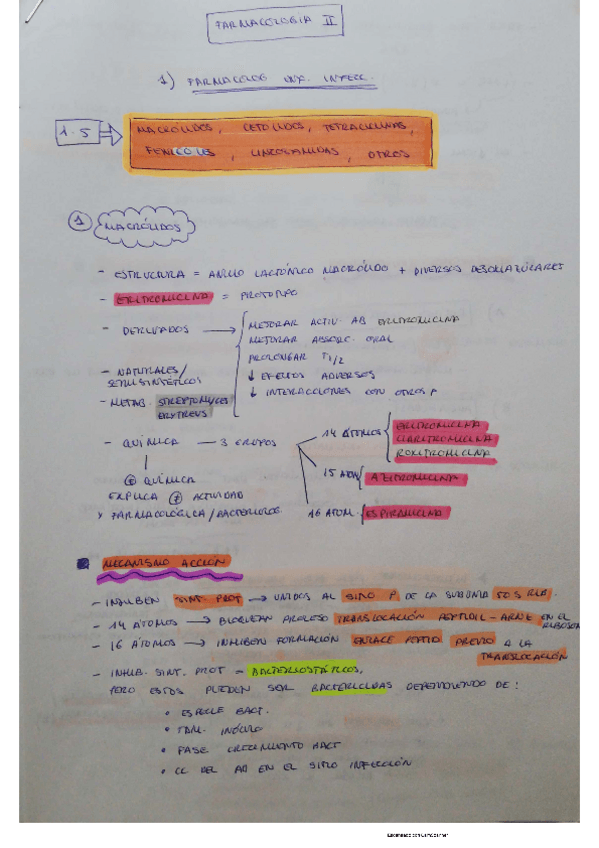 FARMACOLOGÍA II
1) FARMACOLOG ANT. INFECC.
1.5
MACRÓLIDOS, CETOLIDOS, TETRACICLINAS,
FENICOLES, LINCOSAMIDAS, OTROS
1 MACRÓLIDOS
- ESTRUCTURA = ANILLO LACTÓNICO MACRÓLIDO + DIVERSOS DESOXIAZÚCARES
- ERITROMICINA = PROTOTIPO
- DERIVADOS → MEJORAR ACTIV. AB ERITROMICINA
MEJORAR ABSORC. ORAL
PROLONGAR T1/2
↓ EFECTOS ADVERSOS
↓ INTERACCIONES CON OTROS
- NATURALES/
SEMISINTÉTICOS
- METAB. STREPTOMYCES
ERYTREUS
- QUÍMICA — 3 GRUPOS
14 ÁTOMOS ERITROMICINA
CLARITROMICINA
ROXITROMICINA
15 ATOM AZITROMICINA
16 ATOM. ESPIRAMICINA
≠ QUÍMICA
EXPLICA ≠ ACTIVIDAD
FARMACOLÓGICA/BACTERIOLOG
MECANISMO ACCIÓN
- INHIBEN SINT. PROT → UNIDOS AL SITIO P DE LA SUBUNIDAD 50S RIB.
- 14 ÁTOMOS → BLOQUEAN PROCESO TRANSLOCACIÓN PEPTIDIL-ARNT EN EL
RIBOSOM
- 16 ÁTOMOS → INHIBEN FORMACIÓN ENLACE PEPTID PREVIO A LA
TRANSLOCACIÓN
- INHIB. SINT. PROT = BACTERIOSTÁTICOS,
PERO ESTOS PUEDEN SER BACTERICIDAS DEPENDIENDO DE:
• ESPECIE BACT.
• TAM. INÓCULO
• FASE CRECIMIENTO BACT
• CC DEL AB EN EL SITIO INFECCIÓN
Escaneado con CamScanner